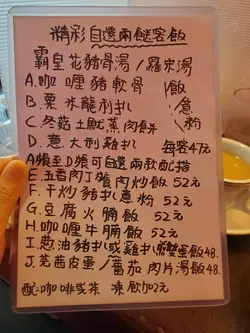 精彩自選兩餸客飯
霸皇花豬骨湯/羅宋湯
A.咖喱豬軟骨
B.粟米龍利扒
C.冬菇土魷蒸肉餅
D.意大利雞扒
飯/意粉
每客47元
A類至D類可自選兩款配搭
E.五香肉丁燴肉炒飯 52元
F.干炒豬扒意粉 52元
G.豆腐火腩飯 52元
H.咖喱牛腩飯 52元
I.葱油豬扒或雞扒雙蛋飯48.
J.芫茜皮蛋/番茄肉片湯飯48.
配:咖啡或茶 凍飲加2元